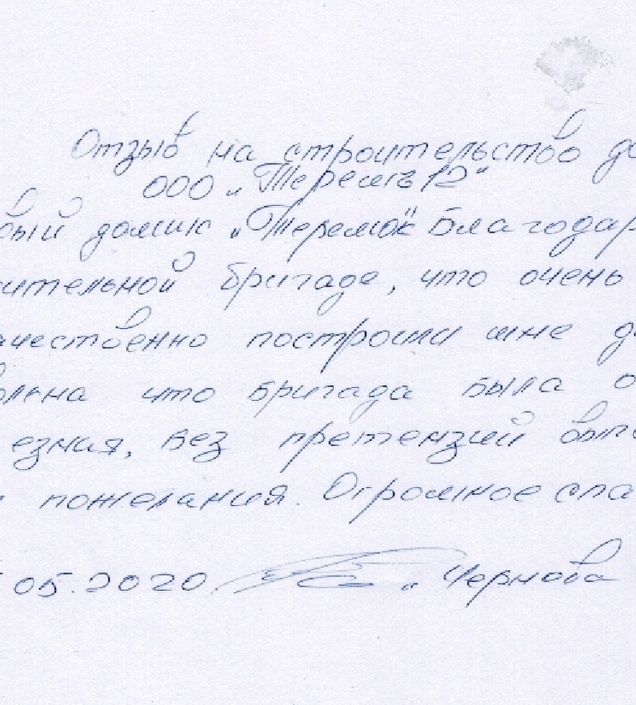 Отзыв на строительство до
ООО „Теремъ 12"
вый домик „Теремок" Благодар
ительной бригаде, что очень
ачественно построили мне до
ольна что бригада была о
езная, без претензий вып
пожелания. Огромное спа
05.2020 Чернова